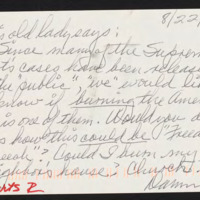 8/22/
's old lady says:
Since many of the Supreme
ts cases have been releas
the "public" "we" would li
know if burning the Amer
is one of them. Would you a
s how this could be "Freed
eech"? Could I burn my
ghbor's house? Church?
Damn
hts 2